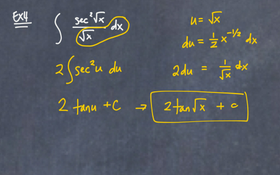 Ex4 ∫ sec²√x / √x dx
u = √x
du = ½ x^(-1/2) dx
2 ∫ sec² u du
2du = 1/√x dx
2 tan u + C → 2 tan √x + C